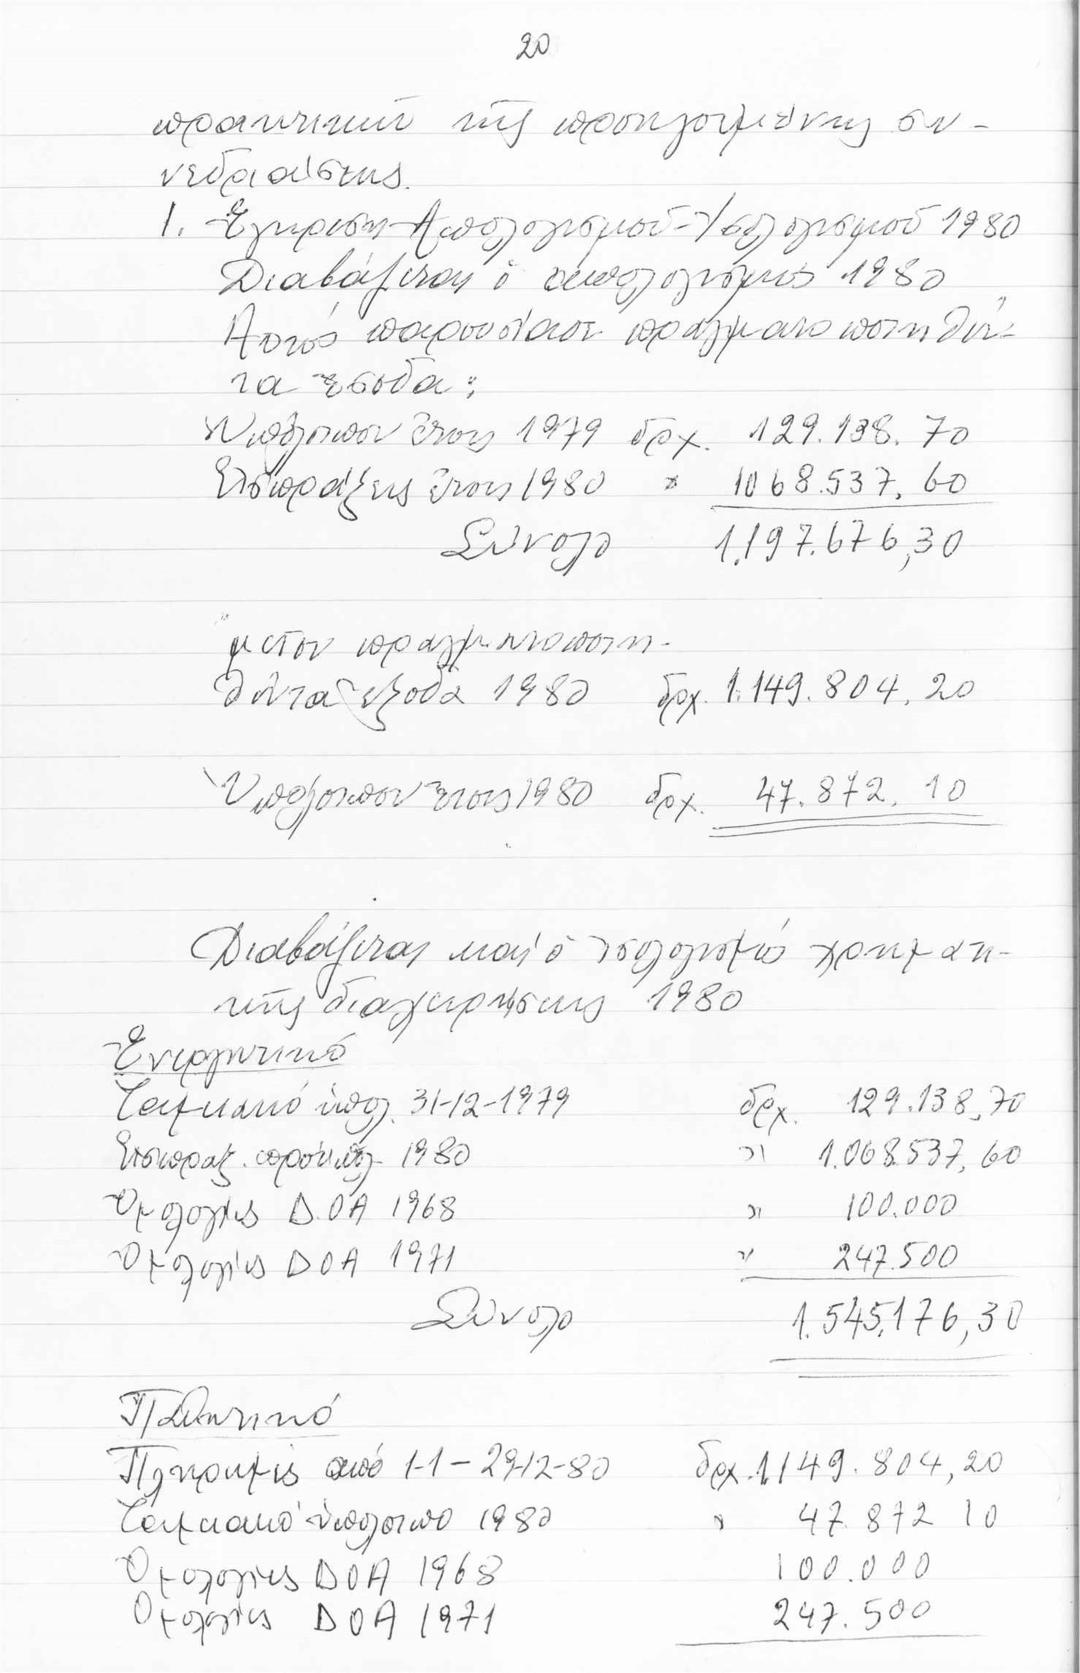 20
πρακτικῶν τῆς προηγουμένης συ-
νεδριάσεως.
1. Ἔγκριση Ἀπολογισμοῦ-Ἰσολογισμοῦ 1980
Διαβάζεται ὁ ἀπολογισμός 1980
Αὐτός παρουσίασε πραγματοποιηθέν-
τα ἔσοδα:
Ὑπόλοιπον ἔτους 1979 δρχ. 129.138.70
Εἰσπράξεις ἔτους 1980 " 1068.537,60
Σύνολο 1.197.676,30
μεῖον πραγματοποιη-
θέντα ἔξοδα 1980 δρχ. 1.149.804,20
Ὑπόλοιπον ἔτους 1980 δρχ. 47.872,10
Διαβάζεται καί ὁ ἰσολογισμός χρηματι-
κῆς διαχειρήσεως 1980
Ἐνεργητικό
Ταμειακό ὑπόλ. 31-12-1979 δρχ. 129.138,70
Εἰσπράξ. προϋπολ. 1980 " 1.068.537,60
Ὁμολογίες ΔΟΑ 1968 " 100.000
Ὁμολογίες ΔΟΑ 1971 " 247.500
Σύνολο 1.545.176,30
Παθητικό
Πληρωμές ἀπό 1-1-29-12-80 δρχ. 1149.804,20
Ταμειακό ὑπόλοιπο 1980 " 47.872 10
Ὁμολογίες ΔΟΑ 1968 100.000
Ὁμολογίες ΔΟΑ 1971 247.500